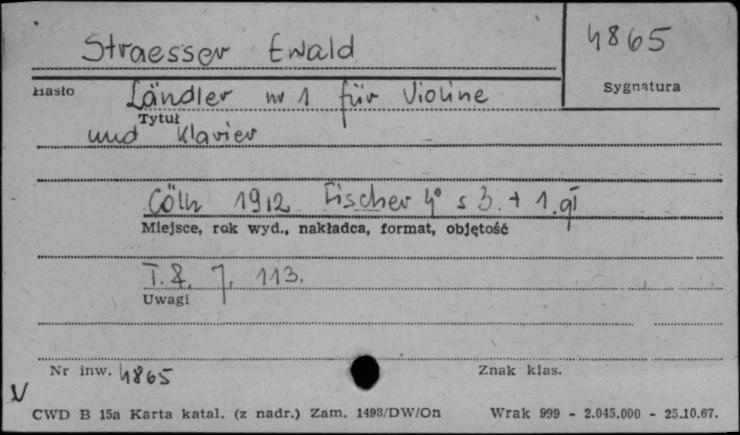 Straesser Ewald
4865
Hasło
Sygnatura
Ländler nr 1 für Violine
Tytuł
und Klavier
Cöln 1912 Fischer 4° s 3. + 1. gł
Miejsce, rok wyd., nakładca, format, objętość
T. 8. 7. 113.
Uwagi
Nr inw. 4865
Znak klas.
V
CWD B 15a Karta katal. (z nadr.) Zam. 1493/DW/On
Wrak 999 - 2.045.000 - 25.10.67.